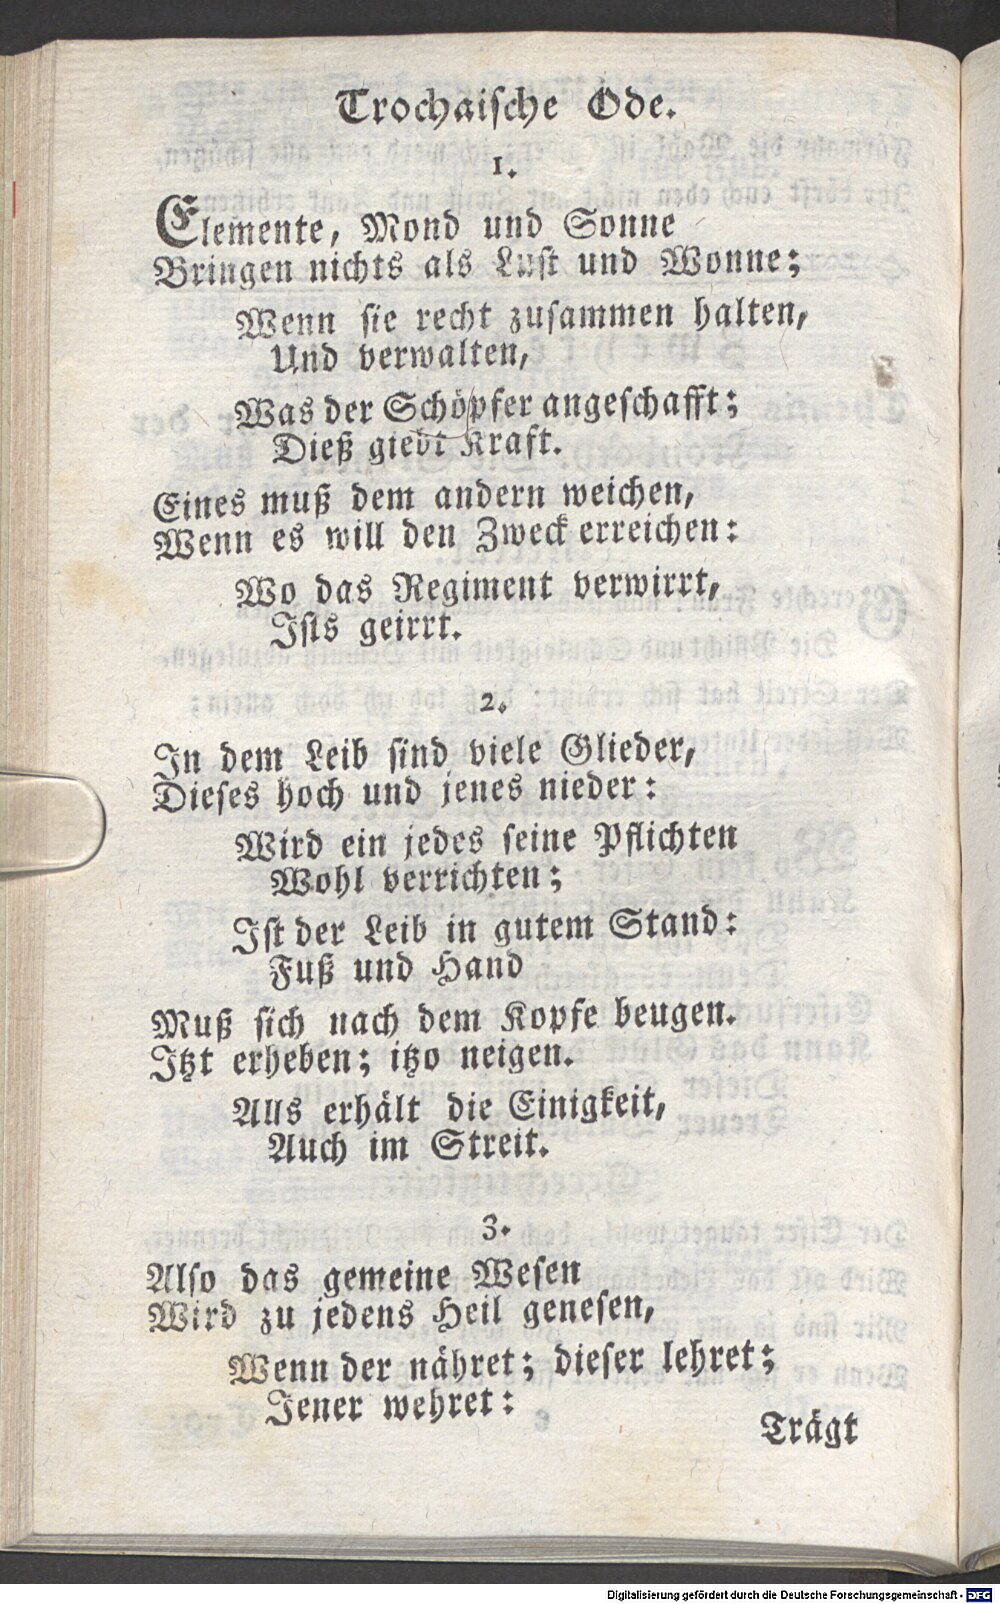 Trochaische Ode.
1.
Elemente, Mond und Sonne
Bringen nichts als Lust und Wonne;
Wenn sie recht zusammen halten,
Und verwalten,
Was der Schöpfer angeschafft;
Dieß giebt Kraft.
Eines muß dem andern weichen,
Wenn es will den Zweck erreichen:
Wo das Regiment verwirrt,
Ists geirrt.
2.
In dem Leib sind viele Glieder,
Dieses hoch und jenes nieder:
Wird ein jedes seine Pflichten
Wohl verrichten;
Ist der Leib in gutem Stand:
Fuß und Hand
Muß sich nach dem Kopfe beugen.
Itzt erheben; itzo neigen.
Alls erhält die Einigkeit,
Auch im Streit.
3.
Also das gemeine Wesen
Wird zu jedens Heil genesen,
Wenn der nähret; dieser lehret;
Jener wehret:
Trägt
Digitalisierung gefördert durch die Deutsche Forschungsgemeinschaft - DFG